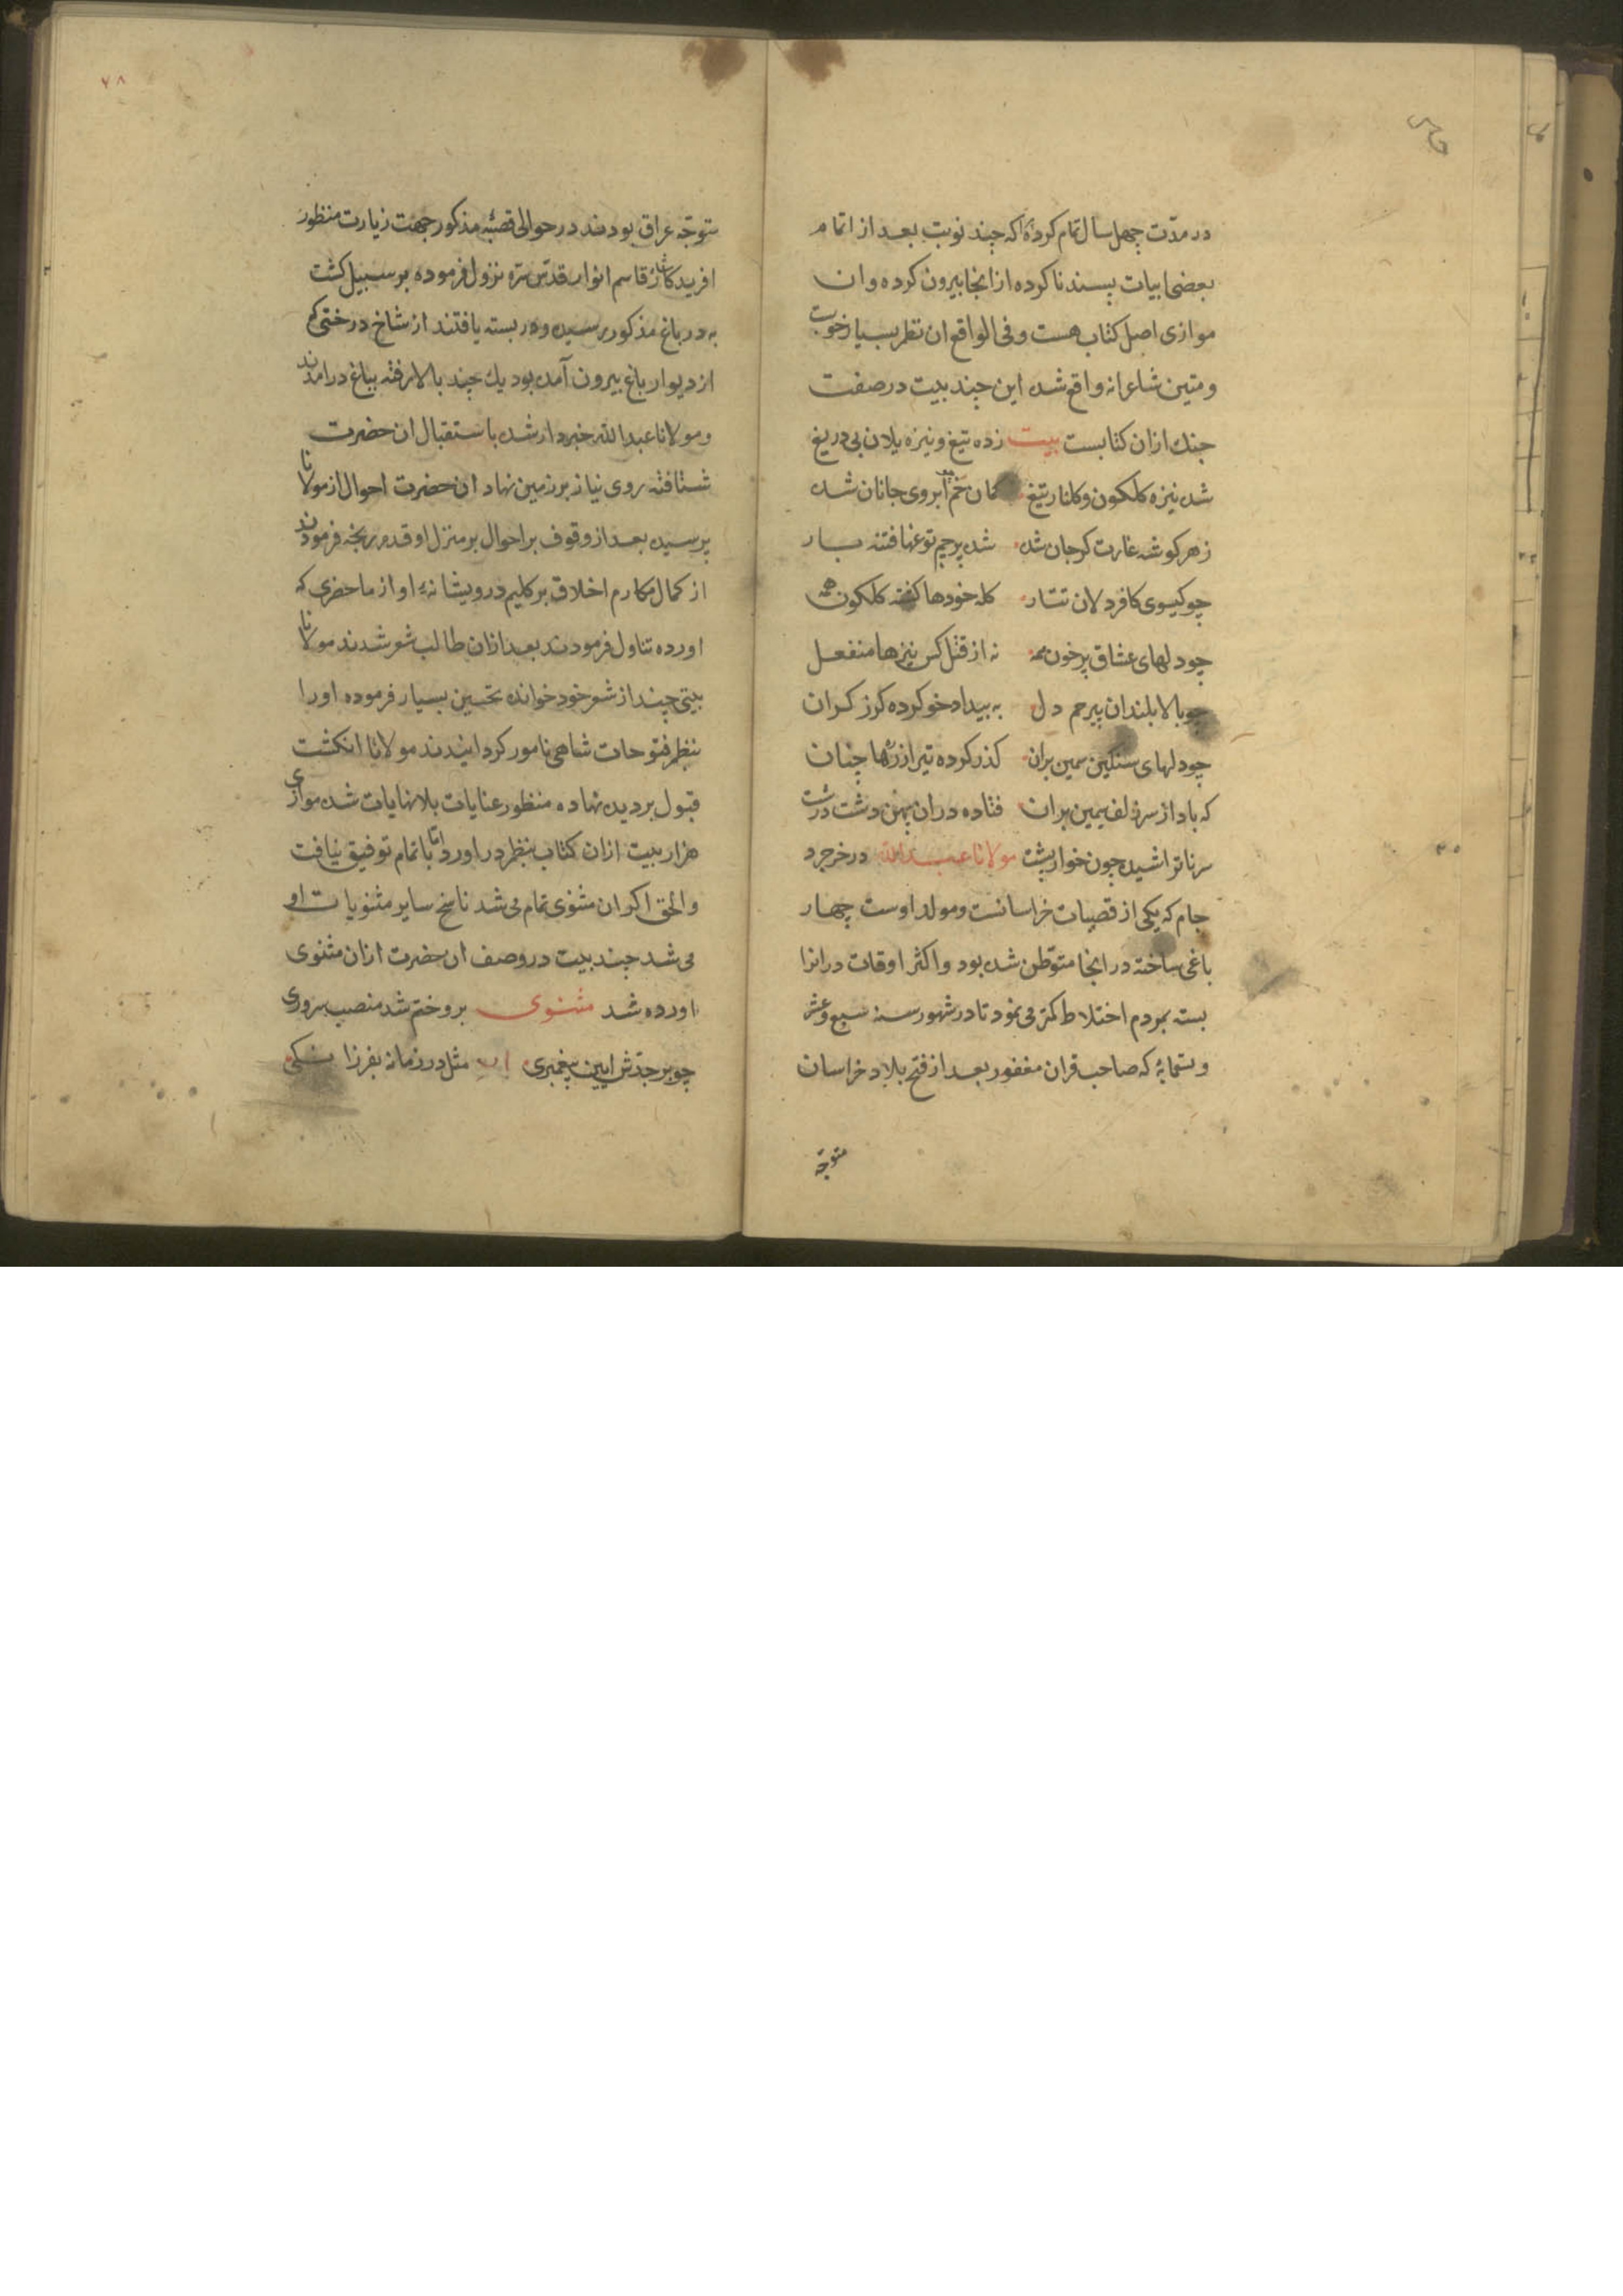 در مدّت چهل سال تمام کرده اکه چند نوبت بعد از اتمام
بعضی ابیات پسند ناکرده از انجا بیرون کرده و ان
موازی اصل کتاب هست و فی الواقع ان نظر بسیار خوب
و متین شاعرانه واقع شده این چند بیت در صفت
جنك ازان کتابست بیت زده تیغ و نیزه یلان بی دریغ
شده نیزه کلکون و کلنار تیغ کمان خم ابروی جانان شده
زهر کوشه غارت کر جان شده شده پرچم توغها فتنه بار
چو کیسوی کافر دلان تتار کله خودها کفته کلکون همه
چو دلهای عشاق پر خون همه نه از قتل کس نیزها منفعل
چو بالا بلندان بیرحم دل به بیداد خو کرده کرز کران
چو دلهای سنکین سیمین بران کذر کرده تیر از زرهها چنان
که باد از سر زلف سیمین بران فتاده دران پهن دشت درشت
سر ناتراشیده چون خوارپشت مولانا عبدالله در خرجرد
جام که یکی از قصبات خراسانست و مولد اوست چهار
باغی ساخته در انجا متوطن شده بود و اکثر اوقات در انرا
بسته بمردم اختلاط کمتر می نمود تا در شهور سنه سبع و عشر
و تسعمایه که صاحب قران مغفور بعد از فتح بلاد خراسان
متوجّه
۷۸
متوجّه عراق بودند در حوالی قصبهٔ مذکور جهت زیارت منظور
افریدکار شاه قاسم انوار قدّس سرّه نزول فرموده بر سبیل کشت
به در باغ مذکور رسیده و در بسته یافتند از شاخ درختی که
از دیوار باغ بیرون آمده بود یك چند بالا رفته بباغ درامدند
و مولانا عبدالله خبردار شده باستقبال ان حضرت
شتافته روی نیاز بر زمین نهاد ان حضرت احوال از مولانا
پرسیده بعد از وقوف بر احوال بر منزل او قدم رنجه فرمودند
از کمال مکارم اخلاق بر کلیم درویشانهٔ او از ماحضری که
اورده تناول فرمودند بعد ازان طالب شعر شدند مولانا
بیتی چند از شعر خود خوانده تحسین بسیار فرموده او را
بنظم فتوحات شاهی نامور کردانیدند مولانا انکشت
قبول بر دیده نهاده منظور عنایات بلانهایات شده موازی
هزار بیت ازان کتاب بنظم در اورد امّا باتمام توفیق نیافت
والحق اکر ان مثنوی تمام می شد ناسخ سایر مثنویات او
می شد چند بیت در وصف ان حضرت ازان مثنوی
اورده شد مثنوی برو ختم شد منصب سروری
چو بر جدّش ایین پیغمبری مثل در زمانه بفرزانکی